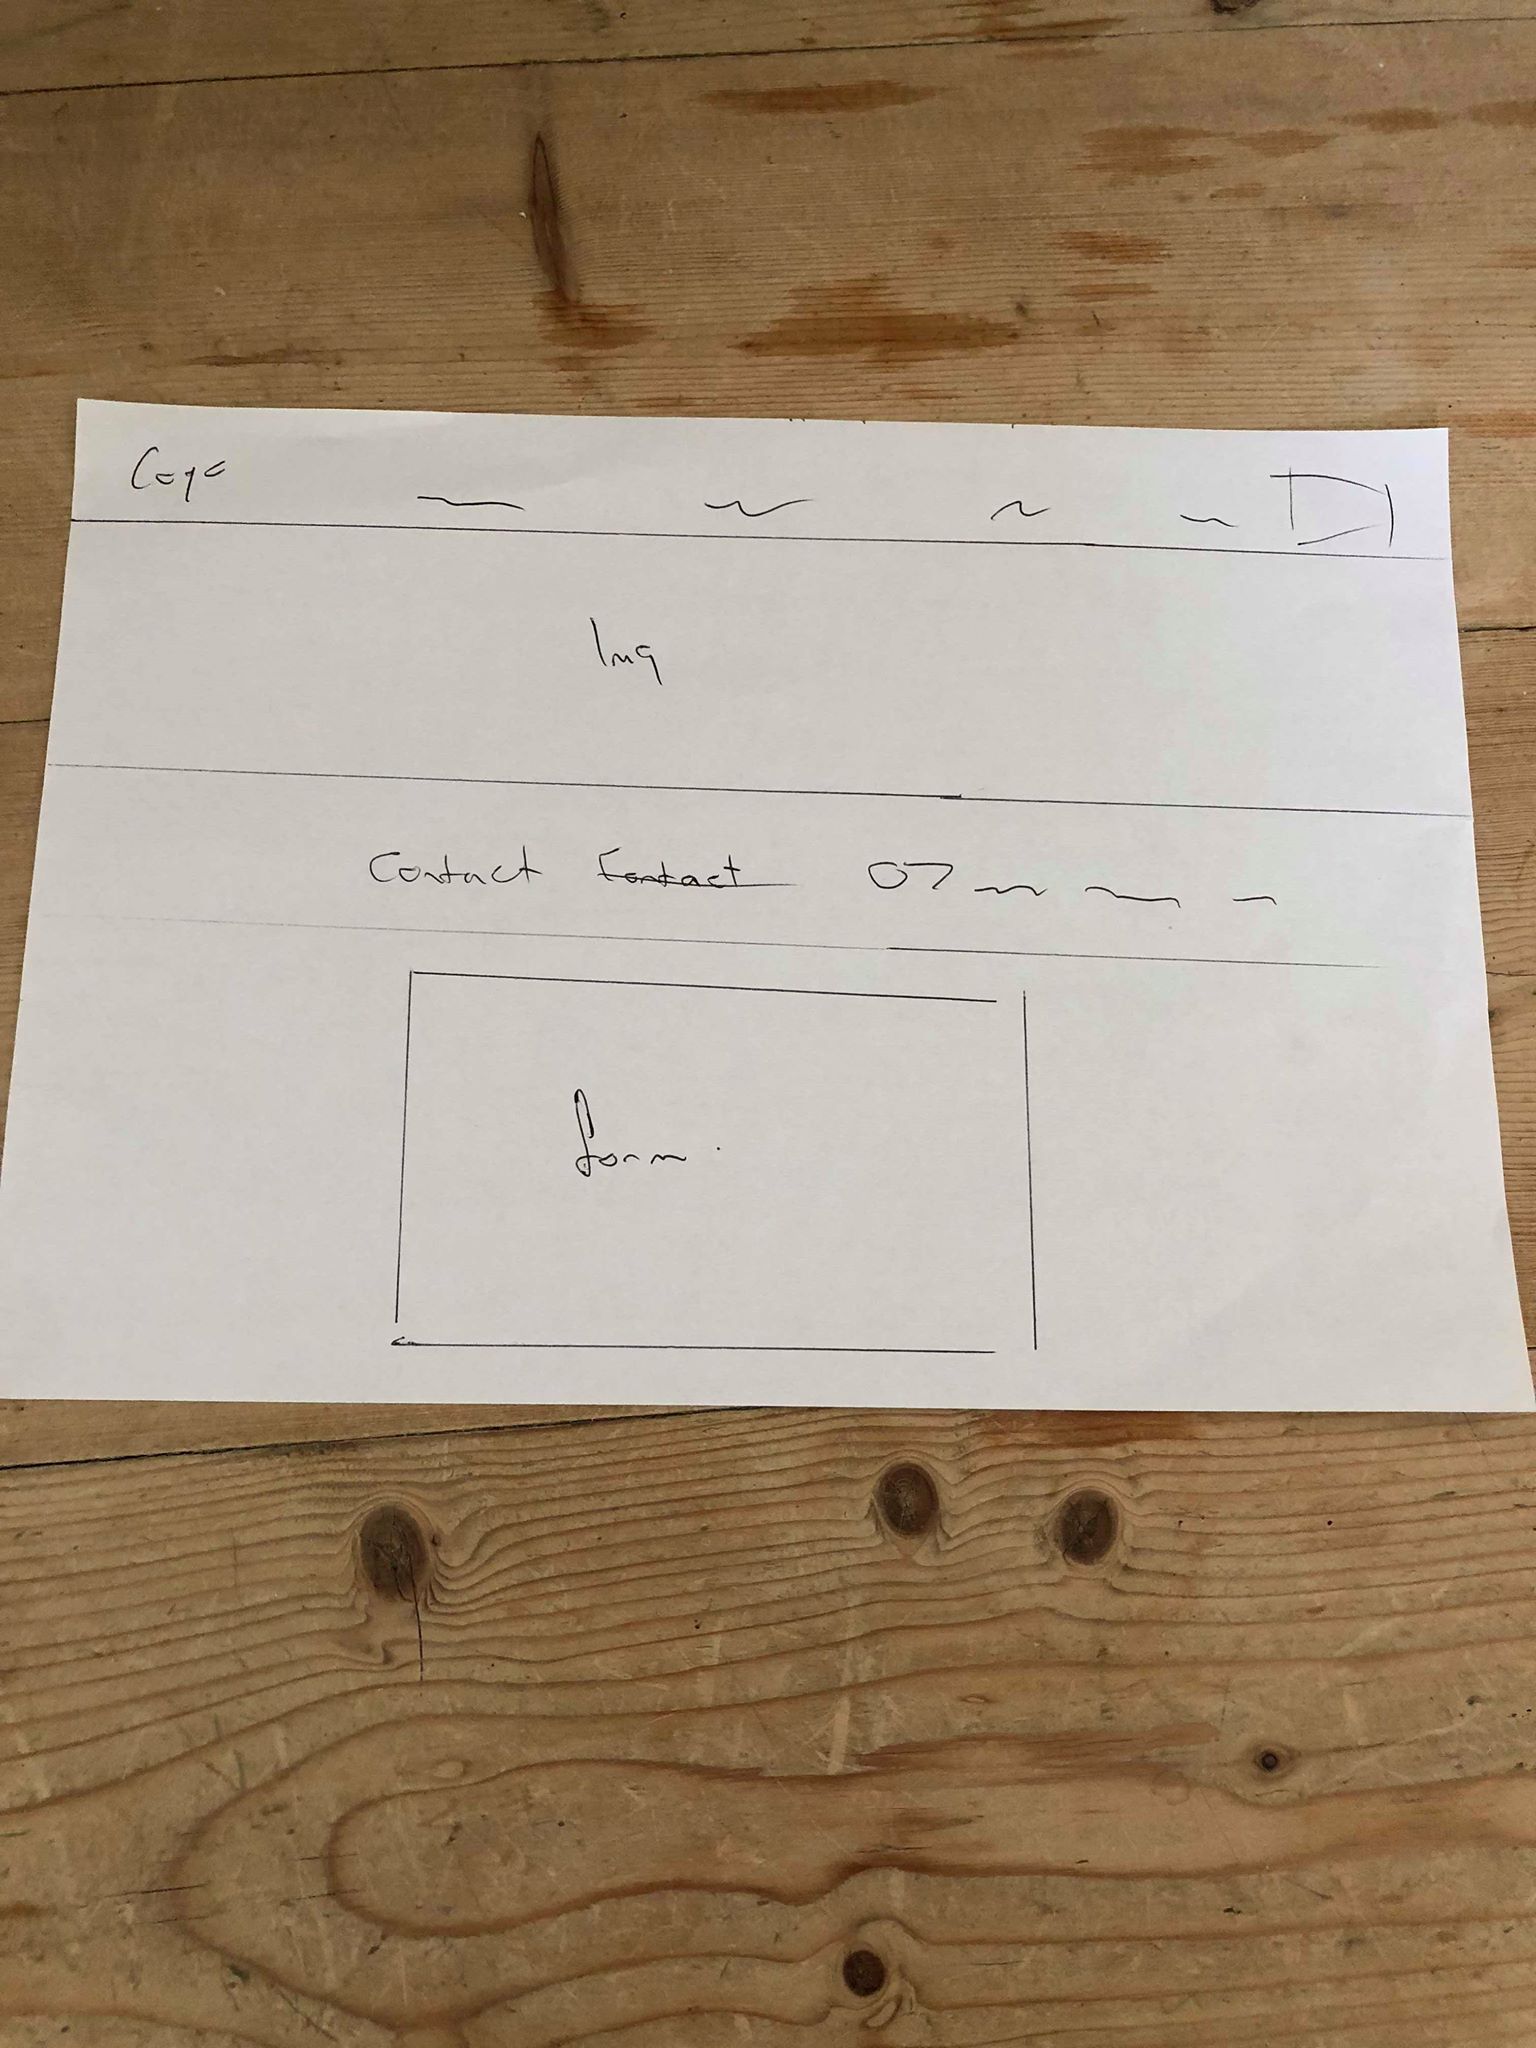 Logo
Img
Contact Contact 07
form.